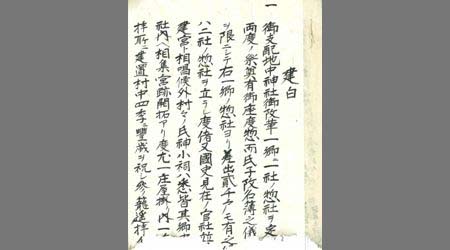 建白
一 御支配地中神社御改革一郷ニ一社ノ惣社ヲ定
両度ノ祭奠有御座度惣而氏子改名簿之儀
ヲ限ニシテ右一郷ノ惣社ヨリ差出貳千戸モ有之
八二社ノ惣社ヲ立ラレ度偖又國史見在ノ官社
建宮ト相唱候外村々ノ氏神小祠ハ悉皆其郷
社内ヘ相集宮跡開拓アリ度尤一庄屋掛リ内一
拝所ニ建置村中四季ニ豊歳ヲ祝シ祭リ